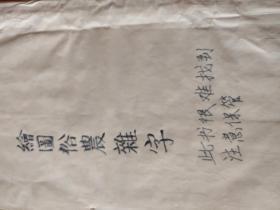 繪圖俗農雜字
此书很难找到
注意保管